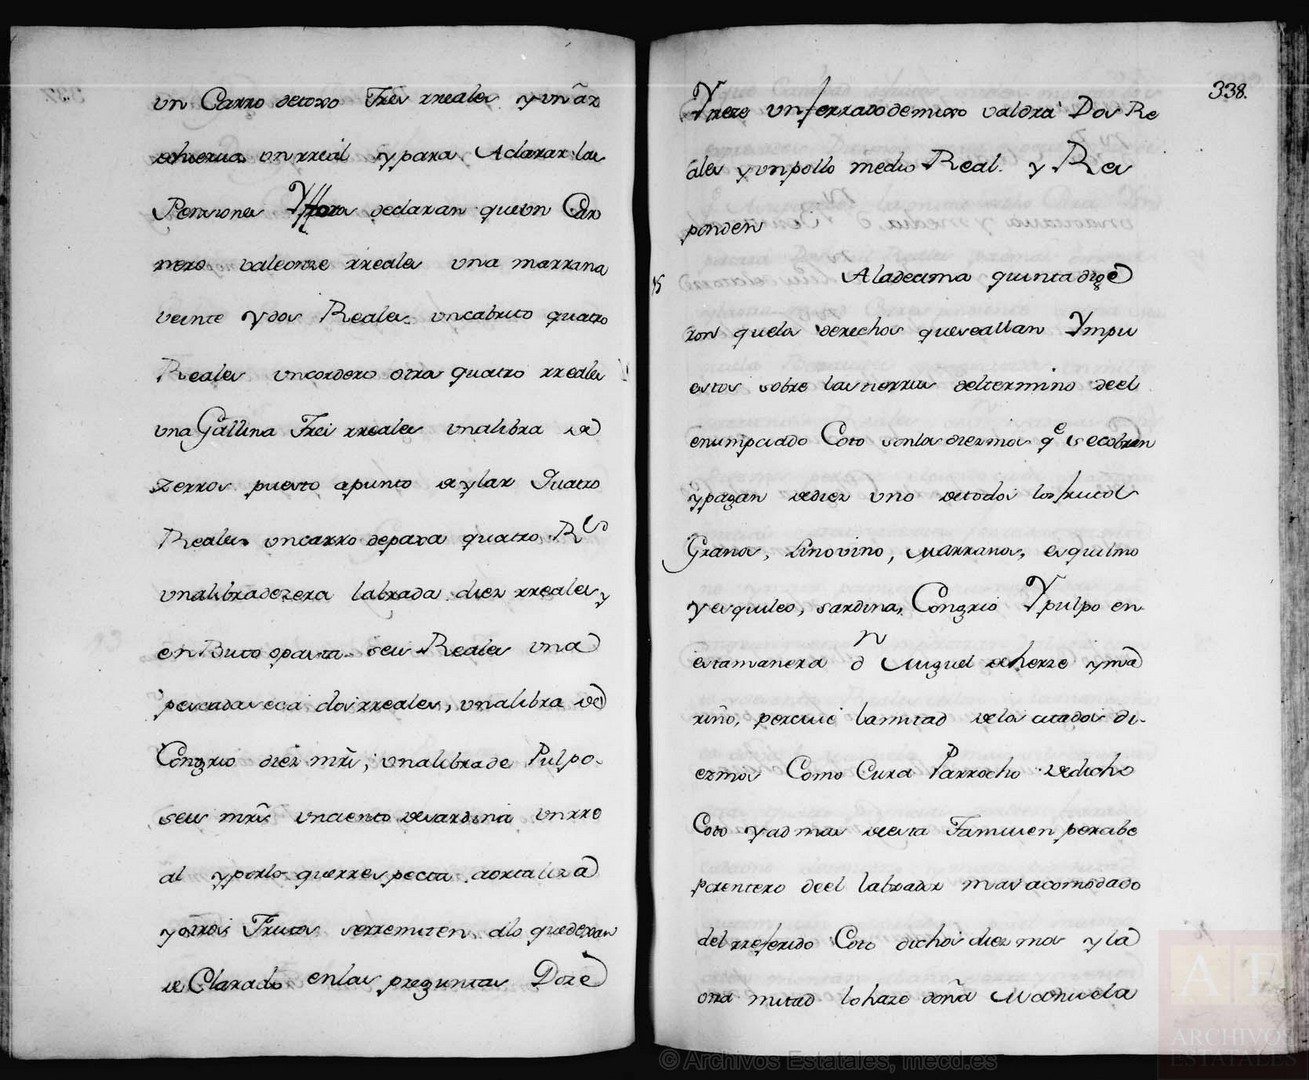 un Carro detoxo Tres rreales y un ãr
rehieria un rreal y para Aclarar las
Penziones Yfforos declaran que un Car
nero vale onze rreales una marrana
veinte y dos Reales un cabrito quatro
Reales un cordero otra quatro rreales
una Gallina Trei rreales una libra de
zerros puesto apunto de ylar Quatro
Reales un carro de paxa quatro Rˢ
una libra de zera labrada diez rreales y
en Buto o pasta seis Reales una
pescada seca dos rreales, una libra de
Congrio diez mrs̃, una libra de Pulpo
seis mrs̃ un ciento de sardina un rre
al y por lo que rrespecta a ortaliza
y otros Frutos se rremiten a lo que dexan
de Clarado en las preguntas Doze
338.
Y treze un ferrado de mixo valdra Dos Re
ales y un pollo medio Real. y Res
ponden
15 A la decima quinta dige
ron que los derechos que se allan Ympu
estos sobre las tierras del termino de el
enunpciado Coto son los diezmos qᵉ se cobran
y pagan de diez uno de todos los frutos
Granos, Lino vino, Marranos, esquilmo
y esquileo, sardina, Congrio Y pulpo en
esta manera dⁿ Miguel de herze y ma
riño, percive la mitad de los citados di-
ezmos Como Cura Parrocho de dicho
Coto y ad mas de esta Tamvien percibe
por entero de el labrador mas acomodado
del rreferido Coto dichos diezmos y la
otra mitad lo haze doña Manuela
© Archivos Estatales, mecd.es
AE
ARCHIVOS
ESTATALES